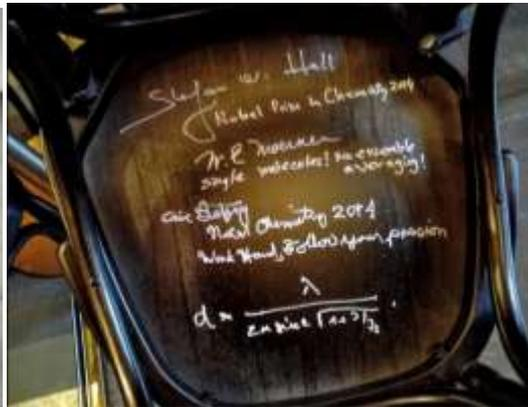 Stefan W. Hell
Nobel Prize in Chemistry 2014
W. E. Moerner
single molecules! no ensemble
averaging!
Eric Betzig
Nobel Chemistry 2014
Work Hard, Follow your passion
λ
d =
2n sin α √1+I/Is